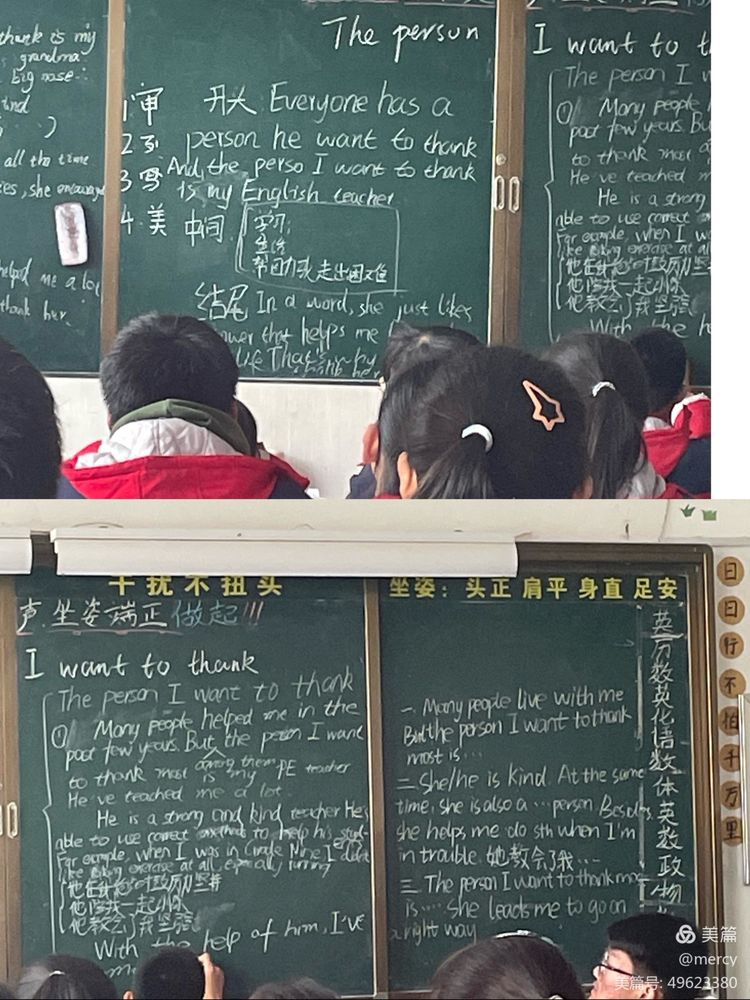 thank is my
grandma
big nose
kind
all the time
she encouraged
helped me a lot
thank her.
The person
1 审
2
3 写
4. 美
开头 Everyone has a
person he want to thank
And the perso I want to thank
is my English teacher
中间
学习:
生活
帮困助我走出困难
结尾 In a word, she just likes
that helps me
life That's my
I want to t
The person I w
① Many people h
past few years. But
to thank most
He've teached m
He is a strong
able to use correct
For example, when I wa
like doing exercise at all
他陪我一起
他教会了我坚强
With the he
干扰不扭头
坐姿: 头正 肩平 身直 足安
声. 坐姿端正 做起!!!
I want to thank
The person I want to thank
① Many people helped me in the
past few years. But the person I want
among them
to thank most is my PE teacher
He've teached me a lot.
He is a strong and kind teacher He's
able to use correct methods to help his
For example, when I was in Grade Nine, I didn't
like doing exercise at all, especially running
他在
他陪我一起
他教会了我坚强
With the help of him, I've
一. Many people live with me
But the person I want to thank
most is ...
二. She/he is kind. At the same
time, she is also a ... person. Besides,
she helps me do sth when I'm
in trouble. 她教会了我...
三. The person I want to thank mo
is .... She leads me to go on
a right way
英
历
数
英
化
语
数
体
英
数
政
物
日
日
行
不
怕
千
万
里
美篇
@mercy
美篇号: 49623380